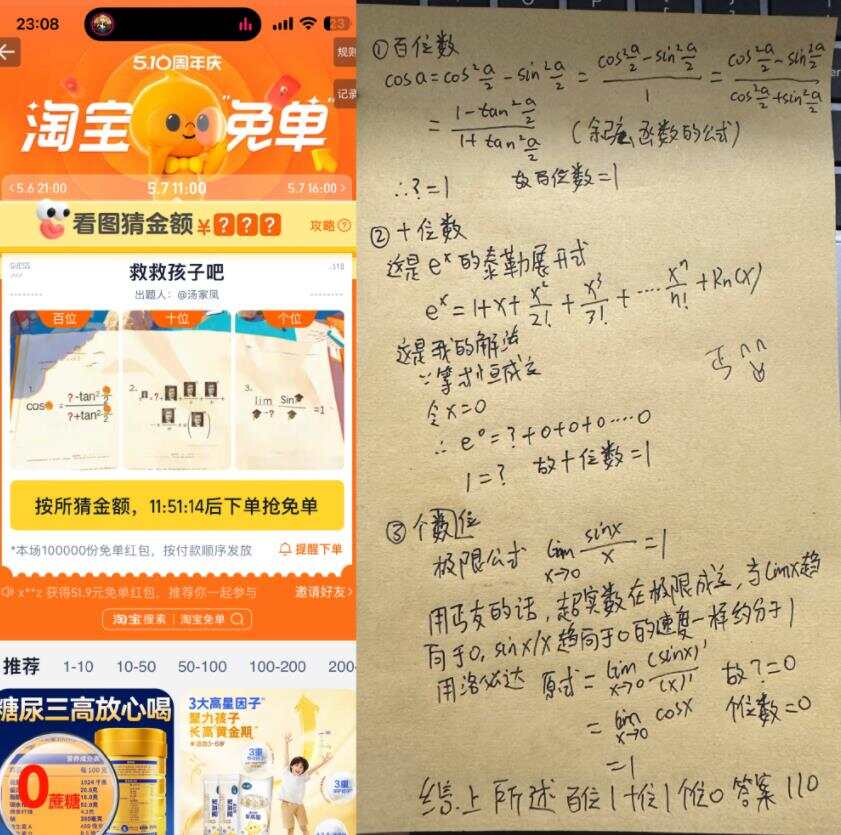 23:08
23
5.10周年庆
规则
记录
淘宝"免单"
<5.6 21:00
5.7 11:00
5.7 16:00>
看图猜金额¥???
攻略?
救救孩子吧
出题人：@汤家凤
百位
十位
个位
1.
2.
3.
?-tan²
cos =
?+tan²
lim Sin
-?
=1
按所猜金额，11:51:14后下单抢免单
*本场100000份免单红包，按付款顺序发放
提醒下单
x**z 获得51.9元免单红包，推荐你一起参与
邀请好友>
淘宝搜索 | 淘宝免单
推荐
1-10
10-50
50-100
100-200
200-
糖尿三高放心喝
0蔗糖
3大高星因子
聚力孩子
长高黄金期
3重
①百位数
cosa=cos²a/2-sin²a/2=(cos²a/2-sin²a/2)/1=(cos²a/2-sin²a/2)/(cos²a/2+sin²a/2)
=(1-tan²a/2)/(1+tan²a/2) (余弦函数的公式)
∴?=1 故百位数=1
②十位数
这是eˣ的泰勒展开式
eˣ=1+x+x²/2!+x³/3!+····xⁿ/n!+Rn(x)
这是我的解法
∵等式恒成立
令x=0
∴e⁰=?+0+0+0····0
1=? 故十位数=1
③个数位
极限公式 lim x→0 sinx/x=1
用丐友的话，超实数在极限成立，当limx趋
向于0，sinx/x趋向于0的速度一样约分于1
用洛必达 原式=lim x→0 (sinx)'/(x)' 故?=0
=lim x→0 cosx 个位数=0
=1
综上所述 百位1十位1个位0 答案110